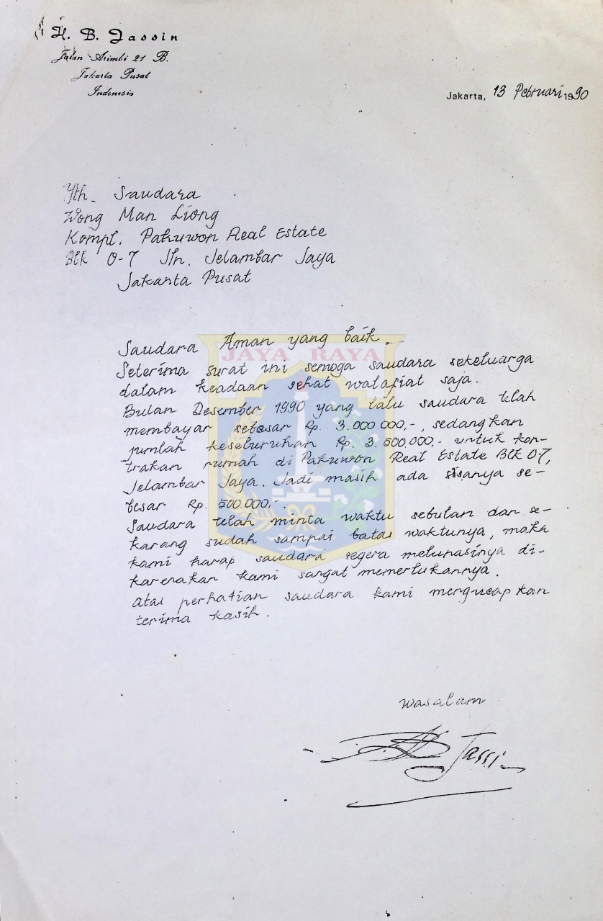 H. B. Jassin
Jalan Arimbi 21 B.
Jakarta Pusat
Indonesia
Jakarta, 13 Pebruari 1990
Yth. Saudara
Wong Man Liong
Kompl. Pakuwon Real Estate
Blk O-7 Jln. Jelambar Jaya
Jakarta Pusat
Saudara Aman yang baik.
Seterima surat ini semoga saudara sekeluarga
dalam keadaan sehat walafiat saja.
Bulan Desember 1990 yang lalu saudara telah
membayar sebesar Rp. 3.000.000,-, sedangkan
jumlah keseluruhan Rp. 3.500.000.- untuk kon-
trakan rumah di Pakuwon Real Estate Blk O-7,
Jelambar Jaya. Jadi masih ada sisanya se-
besar Rp. 500.000,-.
Saudara telah minta waktu sebulan dan se-
karang sudah sampai batas waktunya, maka
kami harap saudara segera melunasinya di-
karenakan kami sangat memerlukannya.
Atas perhatian saudara kami mengucapkan
terima kasih.
Wasalam
Jassin
JAYA RAYA